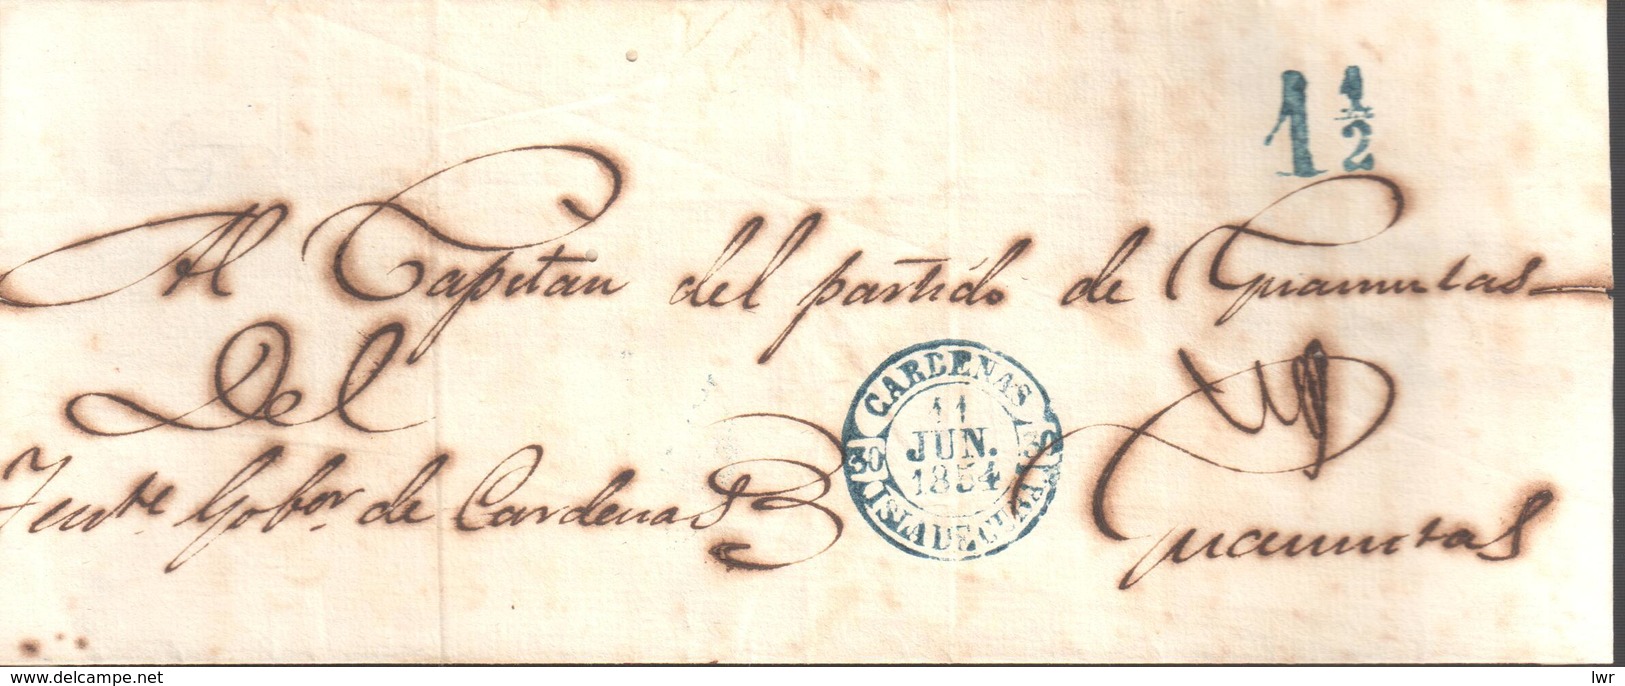 1 1/2
Al Capitan del partido de Guamutas
Del
Tente Gobor. de Cardenas
CARDENAS
11
JUN.
1854
30 30
ISLA DE CUBA
Guamutas
www.delcampe.net
lwr